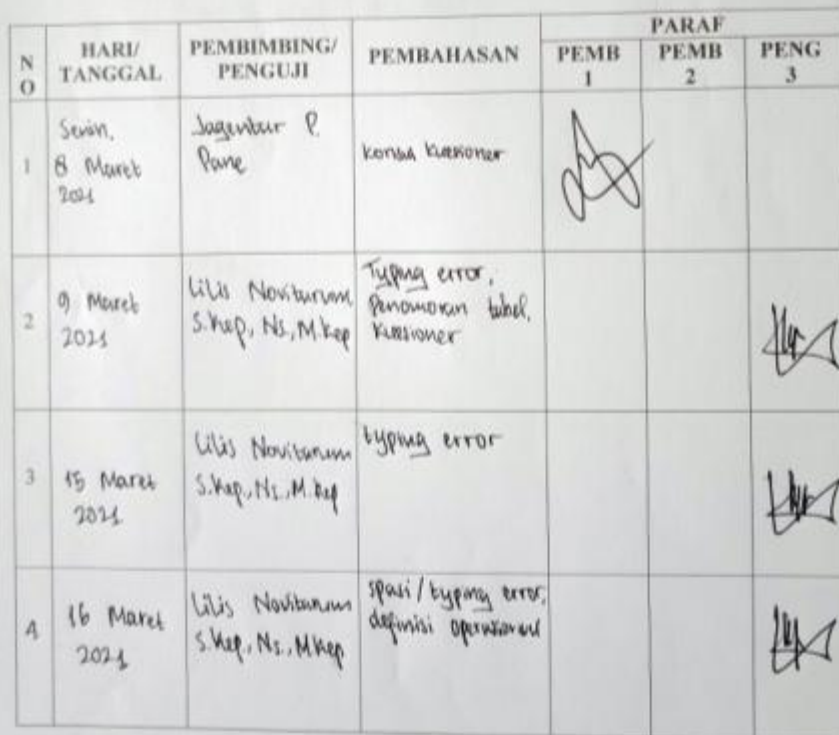 NO
HARI/
TANGGAL
PEMBIMBING/
PENGUJI
PEMBAHASAN
PARAF
PEMB
1
PEMB
2
PENG
3
1
Senin,
8 Maret
2021
Jagentar P.
Pane
Konsul Kuesioner
2
9 Maret
2021
Lilis Novitarum
S.Kep, Ns, M.Kep
Typing error,
Penomoran tabel,
Kuesioner
3
15 Maret
2021
Lilis Novitarum
S.Kep, Ns., M.Kep
typing error
4
16 Maret
2021
Lilis Novitarum
S.Kep, Ns., M.Kep
spasi/typing error,
definisi operasional